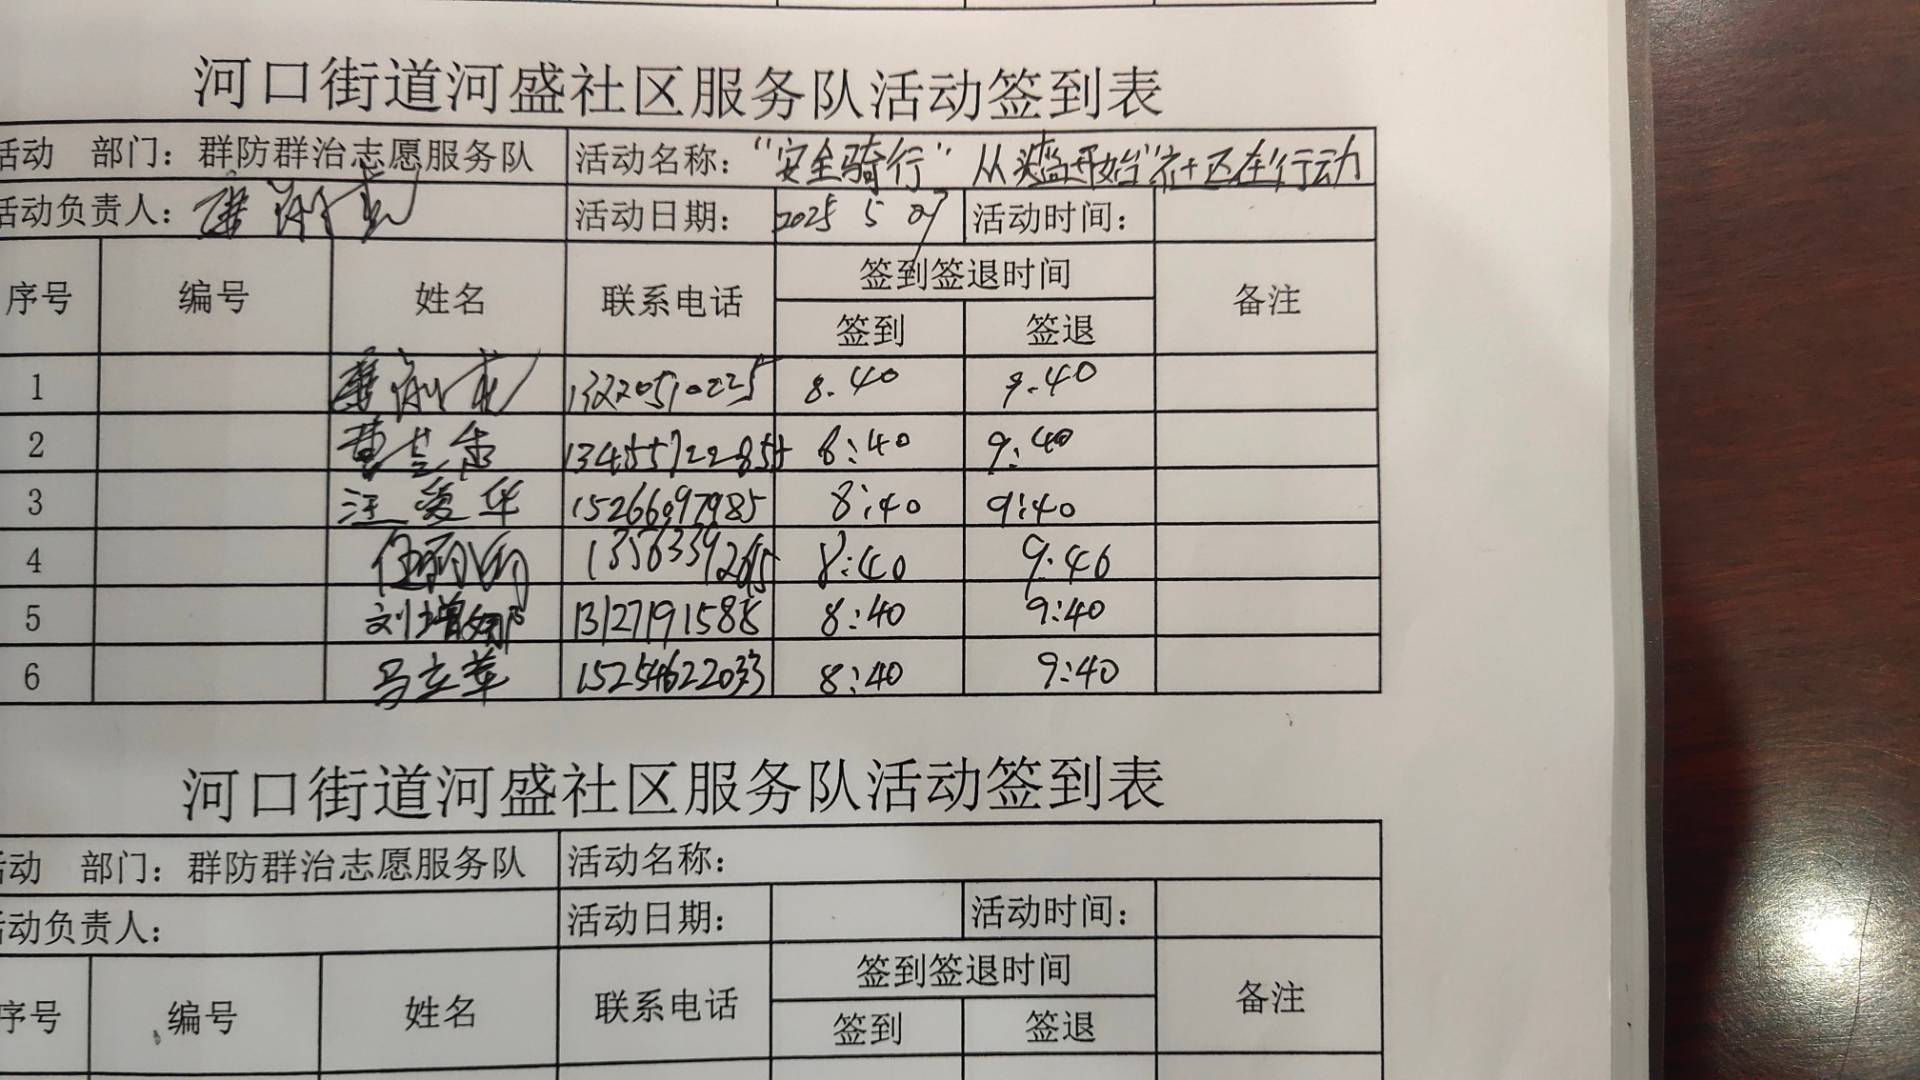 河口街道河盛社区服务队活动签到表
活动 部门：群防群治志愿服务队 活动名称："安全骑行" 从头盔开始"社区在行动
活动负责人： 活动日期： 2025 5 07 活动时间：
序号 编号 姓名 联系电话 签到签退时间 备注
签到 签退
1 13220510225 8.40 9.40
2 8:40 9:40
3 汪爱华 15266097985 8:40 9:40
4 8:40 9:40
5 刘增娜 13127191588 8:40 9:40
6 马立萍 15254622033 8:40 9:40
河口街道河盛社区服务队活动签到表
活动 部门：群防群治志愿服务队 活动名称：
活动负责人： 活动日期： 活动时间：
序号 编号 姓名 联系电话 签到签退时间 备注
签到 签退